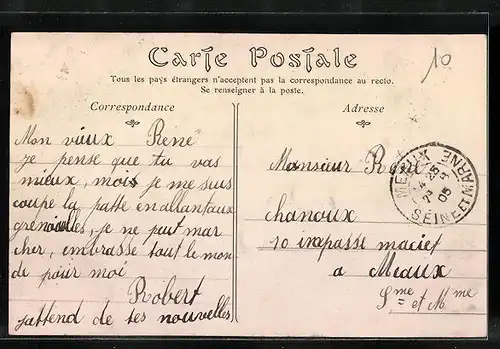 Carte Postale
10
Tous les pays étrangers n'acceptent pas la correspondance au recto.
Se renseigner à la poste.
Correspondance
Adresse
Mon vieux René
je pense que tu vas
mieux, mois je me suis
coupe la patte en allant aux
grenouilles, je ne put mar
cher, embrasse tout le mon
de pour moi
Robert
j'attend de tes nouvelles
Monsieur René
chanoux
10 impasse maciet
a Meaux
Sme et Mme
MEAUX
25
05
SEINE ET MARNE